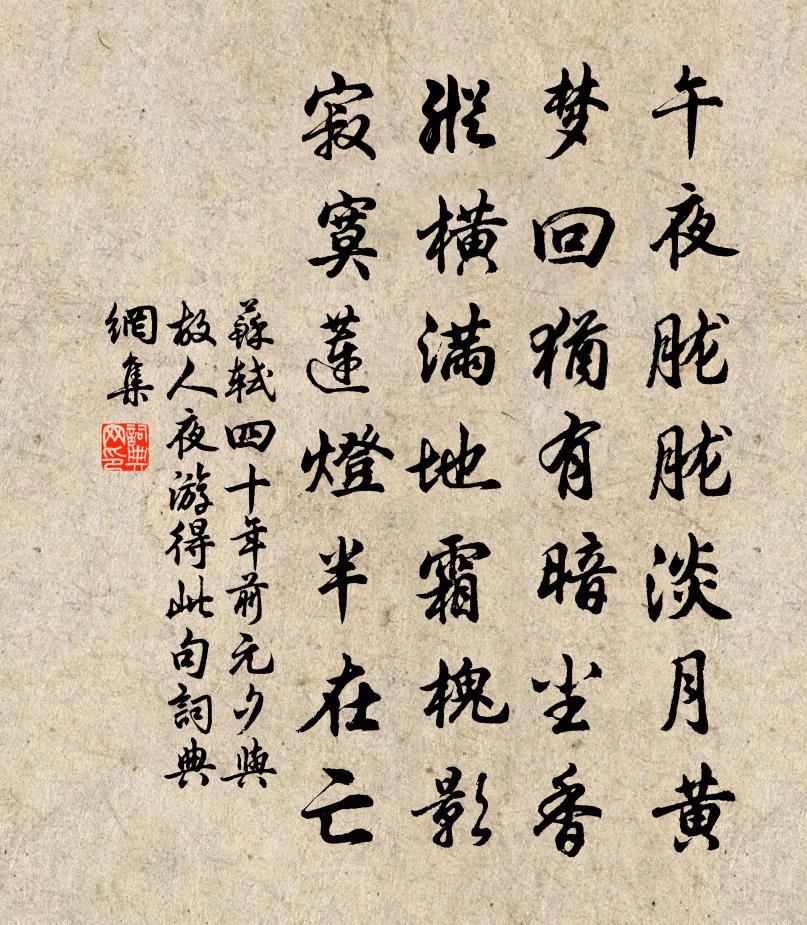 午夜胧胧淡月黄
梦回犹有暗尘香
纵横满地霜槐影
寂寞莲灯半在亡
蘇軾四十年前元夕與
故人夜游得此句詞典
網集
詞典
网印